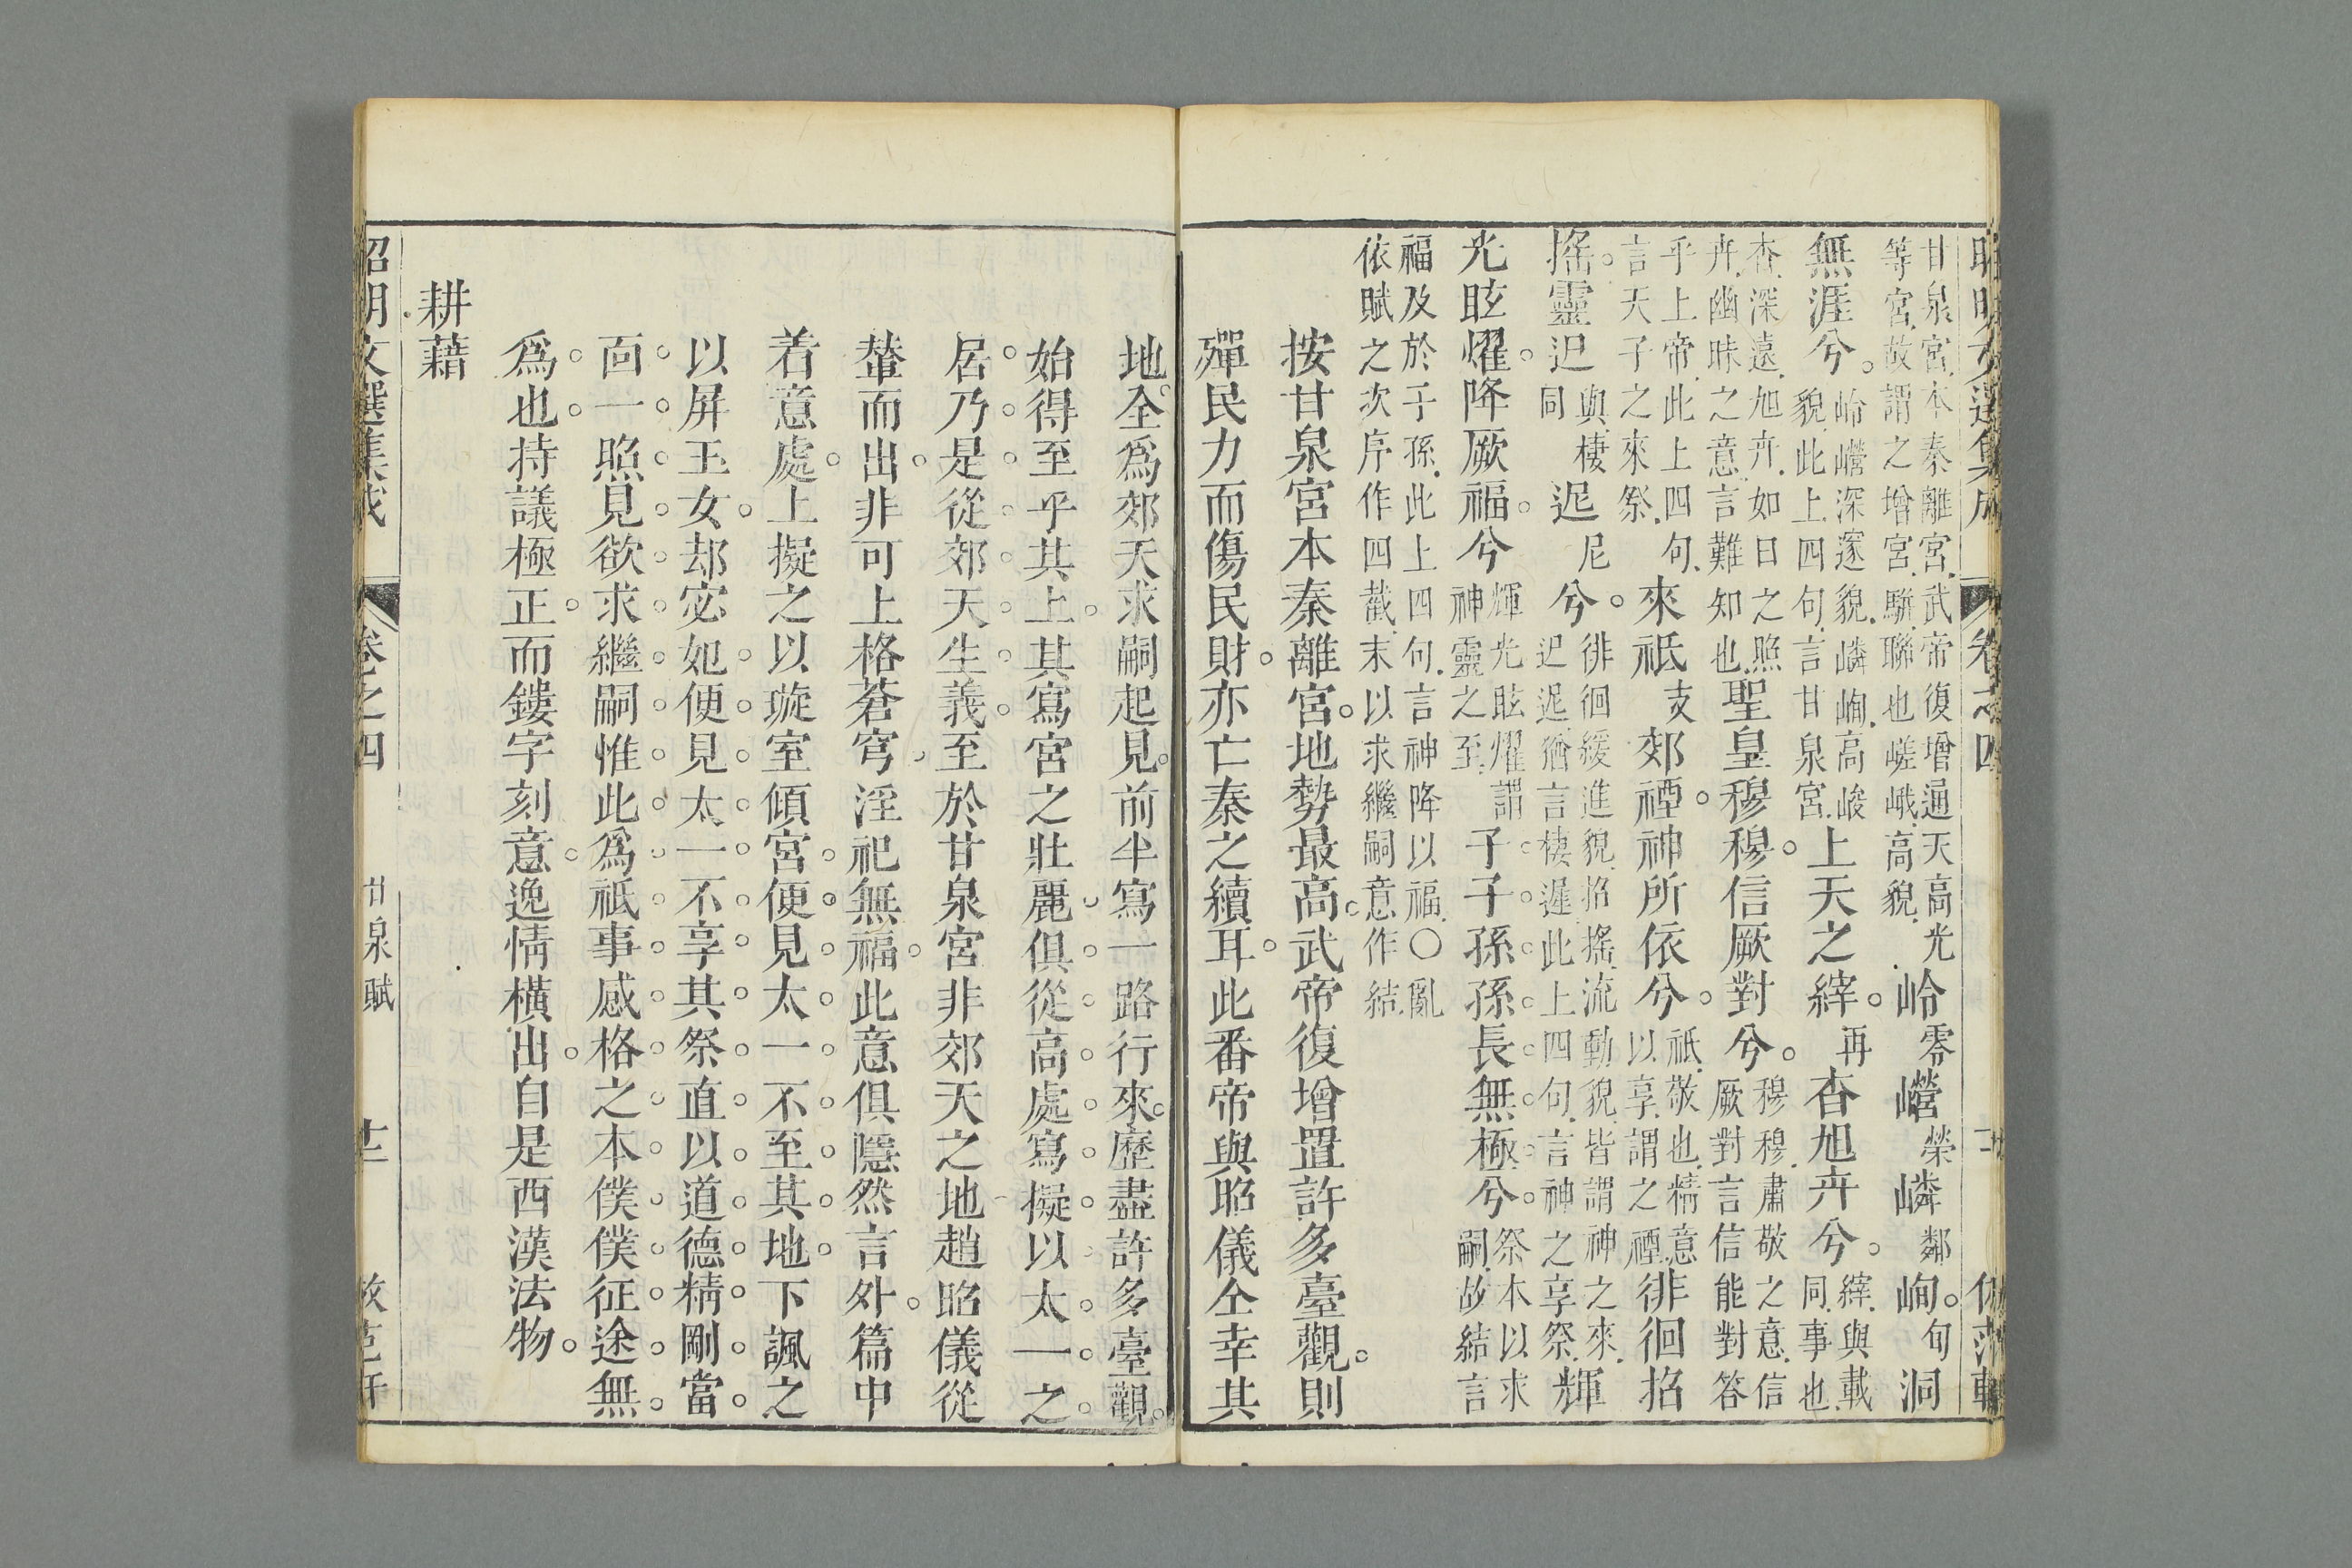 昭明文選集成 卷之四
甘泉宮本秦離宮武帝復增通天高光
等宮故謂之增宮駢聯也嵯峨高貌
岭零巆嶙鄰峋句洞
無涯兮
岭巆深邃貌嶙峋高峻
貌此上四句言甘泉宮
上天之縡再杳旭卉兮
縡與載
同事也
杳深遠旭卉如日之照
卉幽昧之意言難知也
聖皇穆穆信厥對兮
穆穆肅敬之意信
厥對言信能對答
乎上帝此上四句
言天子之來祭
來祇支郊禋神所依兮
祇敬也精意
以享謂之禋
徘徊招
搖靈迉
與棲
同
迡尼兮
徘徊緩進貌招搖流動貌皆謂神之來
迉迡猶言棲遲此上四句言神之享祭
輝
光眩燿降厥福兮
輝光眩燿謂
神靈之至
子子孫孫長無極兮
祭本以求
嗣故結言
福及於子孫此上四句言神降以福〇亂
依賦之次序作四截末以求繼嗣意作結
按甘泉宮本秦離宮地勢最高武帝復增置許多臺觀則
殫民力而傷民財亦亡秦之續耳此番帝與昭儀仝幸其
地全爲郊天求嗣起見前半寫一路行來歷盡許多臺觀
始得至乎其上其寫宮之壯麗俱從高處寫擬以太一之
居乃是從郊天生義至於甘泉宮非郊天之地趙昭儀從
輦而出非可上格蒼穹淫祀無福此意俱隱然言外篇中
着意處上擬之以璇室傾宮便見太一不至其地下諷之
以屏玉女却宓妃便見太一不享其祭直以道德精剛當
面一照見欲求繼嗣惟此爲祇事感格之本僕僕征途無
爲也持議極正而鏤字刻意逸情橫出自是西漢法物
耕藉
昭明文選集成 卷之四 甘泉賦